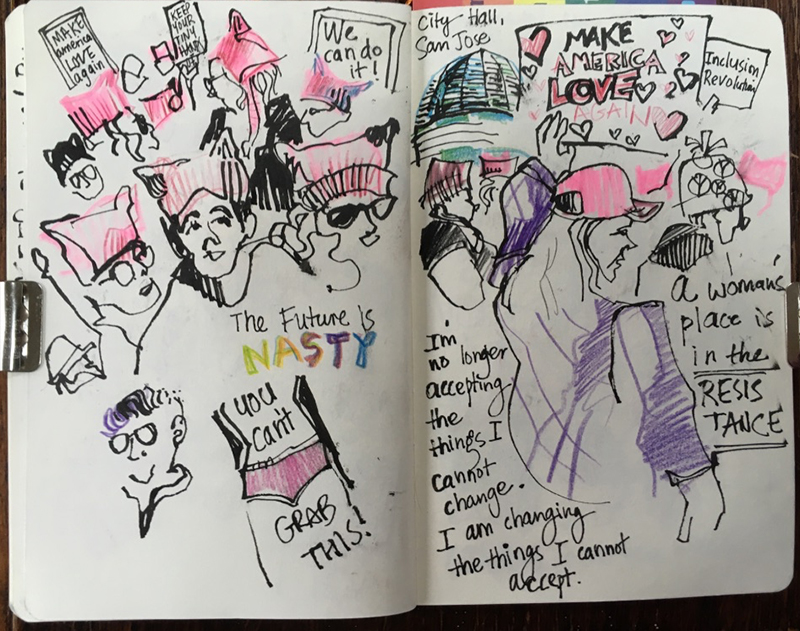 MAKE
america
LOVE
again
KEEP
YOUR
TINY
HANDS
We
can do
it!
The Future is
NASTY
you
can't
GRAB
THIS!
City Hall,
San Jose
MAKE
AMERICA
LOVE
AGAIN
Inclusion
Revolution
I'm
no longer
accepting
the
things I
cannot
change.
I am changing
the things I cannot
accept.
a woman's
place is
in the
RESIS
TANCE